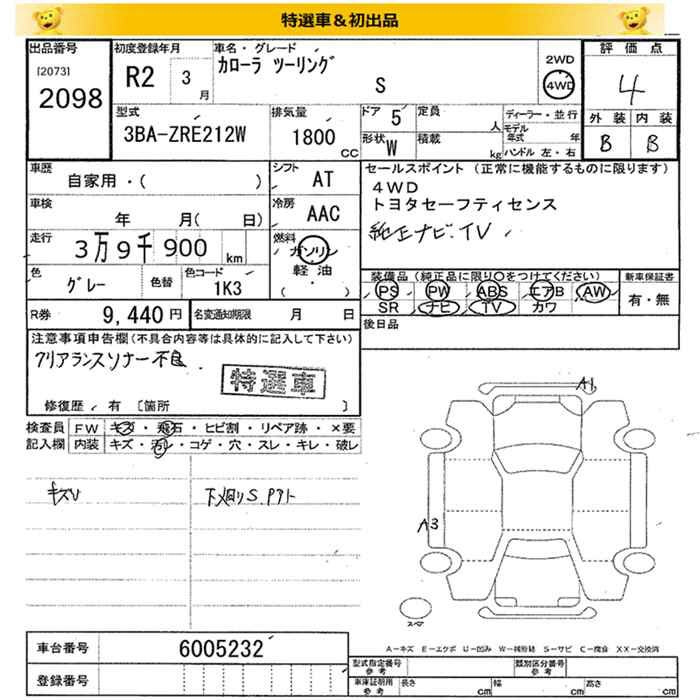 特選車＆初出品
出品番号 初度登録年月 車名・グレード 評価点
[2073] R2 3月 カローラ ツーリング 2WD
2098 S 4WD 4
型式 排気量 ドア 5 定員 人 ディーラー・並行 外装 内装
3BA-ZRE212W 1800 CC 形状 W 積載 kg モデル年式 年 B B
ハンドル 左・右
車歴 シフト セールスポイント (正常に機能するものに限ります)
自家用・( ) AT 4WD
車検 年 月( 日) 冷房 AAC トヨタセーフティセンス
走行 3万9千900km 燃料 ガソリン 純正ナビ、TV
色 色替 色コード 軽油・( ) 装備品(純正品に限り○をつけてください) 新車保証書
グレー 1K3 PS PW ABS エアB AW 有・無
R券 9,440円 名変通知期限 月 日 SR ナビ TV カワ
注意事項申告欄(不具合内容等は具体的に記入して下さい) 後日品
クリアランスソナー不良
特選車
修復歴 有 [箇所 ]
A1
検査員 FW キズ・飛石・ヒビ割・リペア跡・×要
記入欄 内装 キズ・汚レ・コゲ・穴・スレ・キレ・破レ
キズU 下廻りS.
A3
スペア
車台番号 6005232 A=キズ E=エクボ U=凹み S=サビ C=腐食 XX=交換済
登録番号 型式指定番号 参考 類別区分番号 参考
車庫証明用 参考 長さ cm 幅 cm 高さ cm